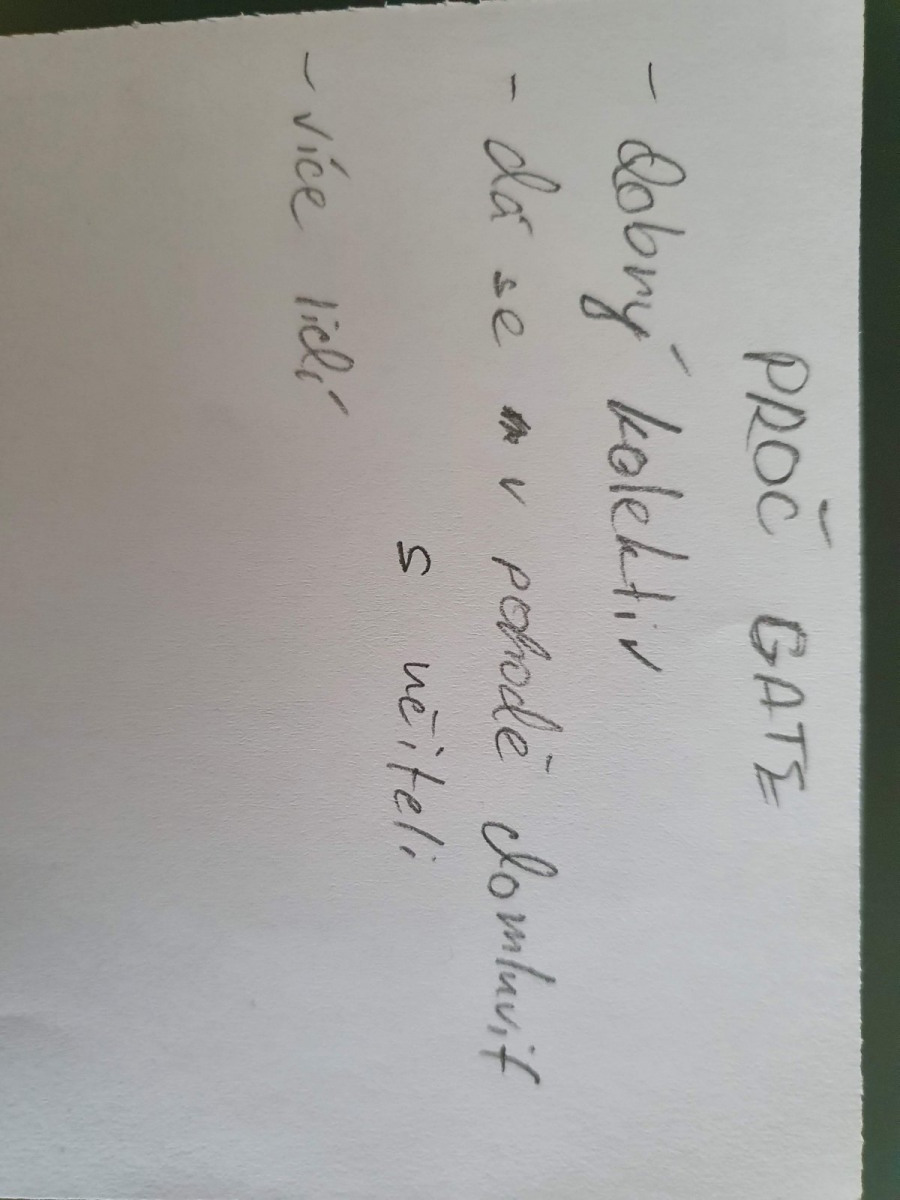 PROČ GATE
- dobrý kolektiv
- dá se v pohodě domluvit
s učiteli
- více lidí